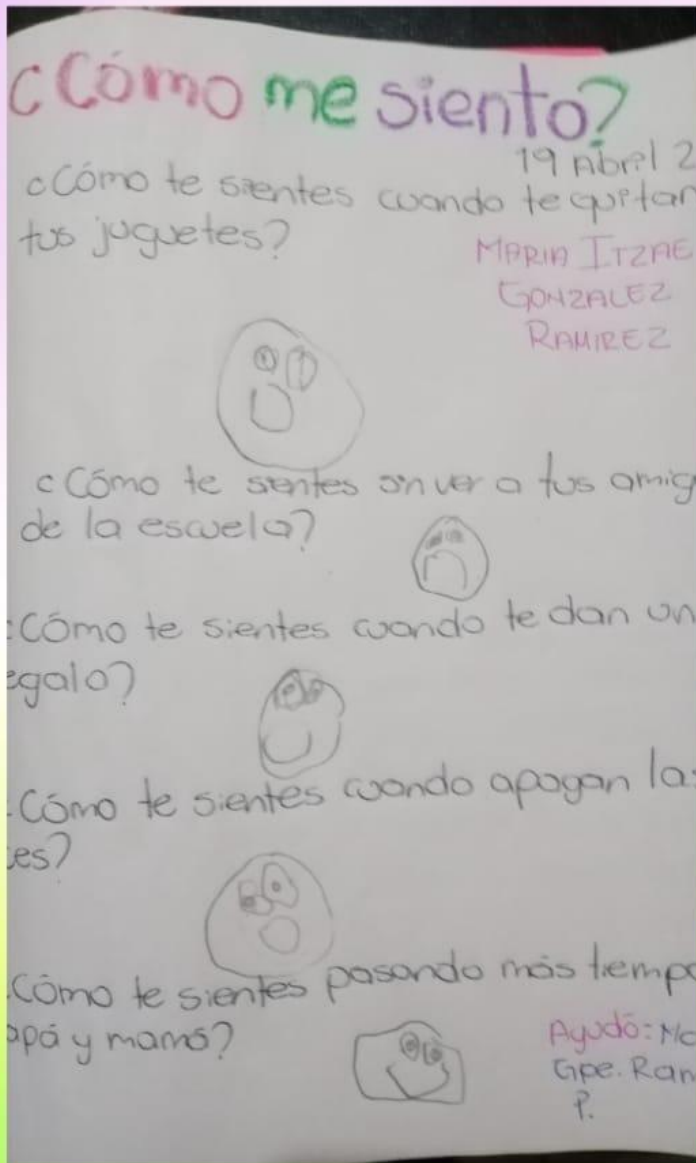 ¿Cómo me siento?
19 Abril 2
¿Cómo te sientes cuando te quitan
tus juguetes?
MARIA ITZAE
GONZALEZ
RAMIREZ
¿Cómo te sientes sin ver a tus amig
de la escuela?
¿Cómo te sientes cuando te dan un
egalo?
¿Cómo te sientes cuando apagan la
ces?
¿Cómo te sientes pasando más tiempo
apá y mamá?
Ayudó: Ma
Gpe. Ram
P.